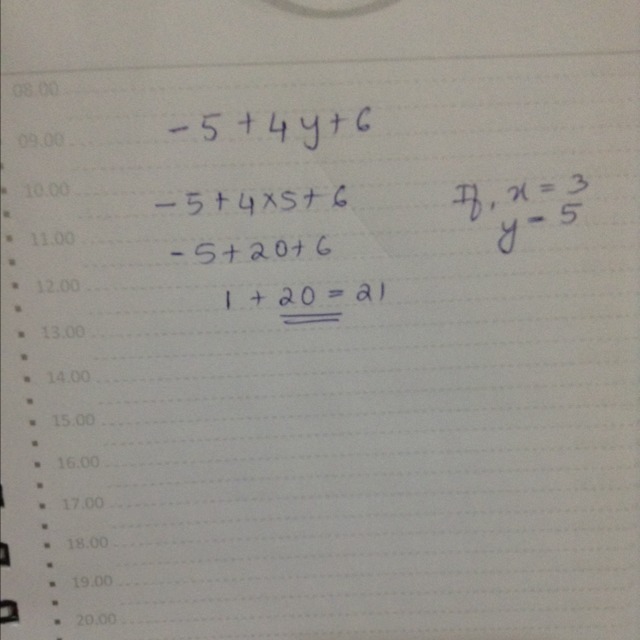 08.00
-5+4y+6
09.00
10.00
-5+4×5+6
If, x = 3
y = 5
11.00
-5+20+6
12.00
1 + 20 = 21
13.00
14.00
15.00
16.00
17.00
18.00
19.00
20.00